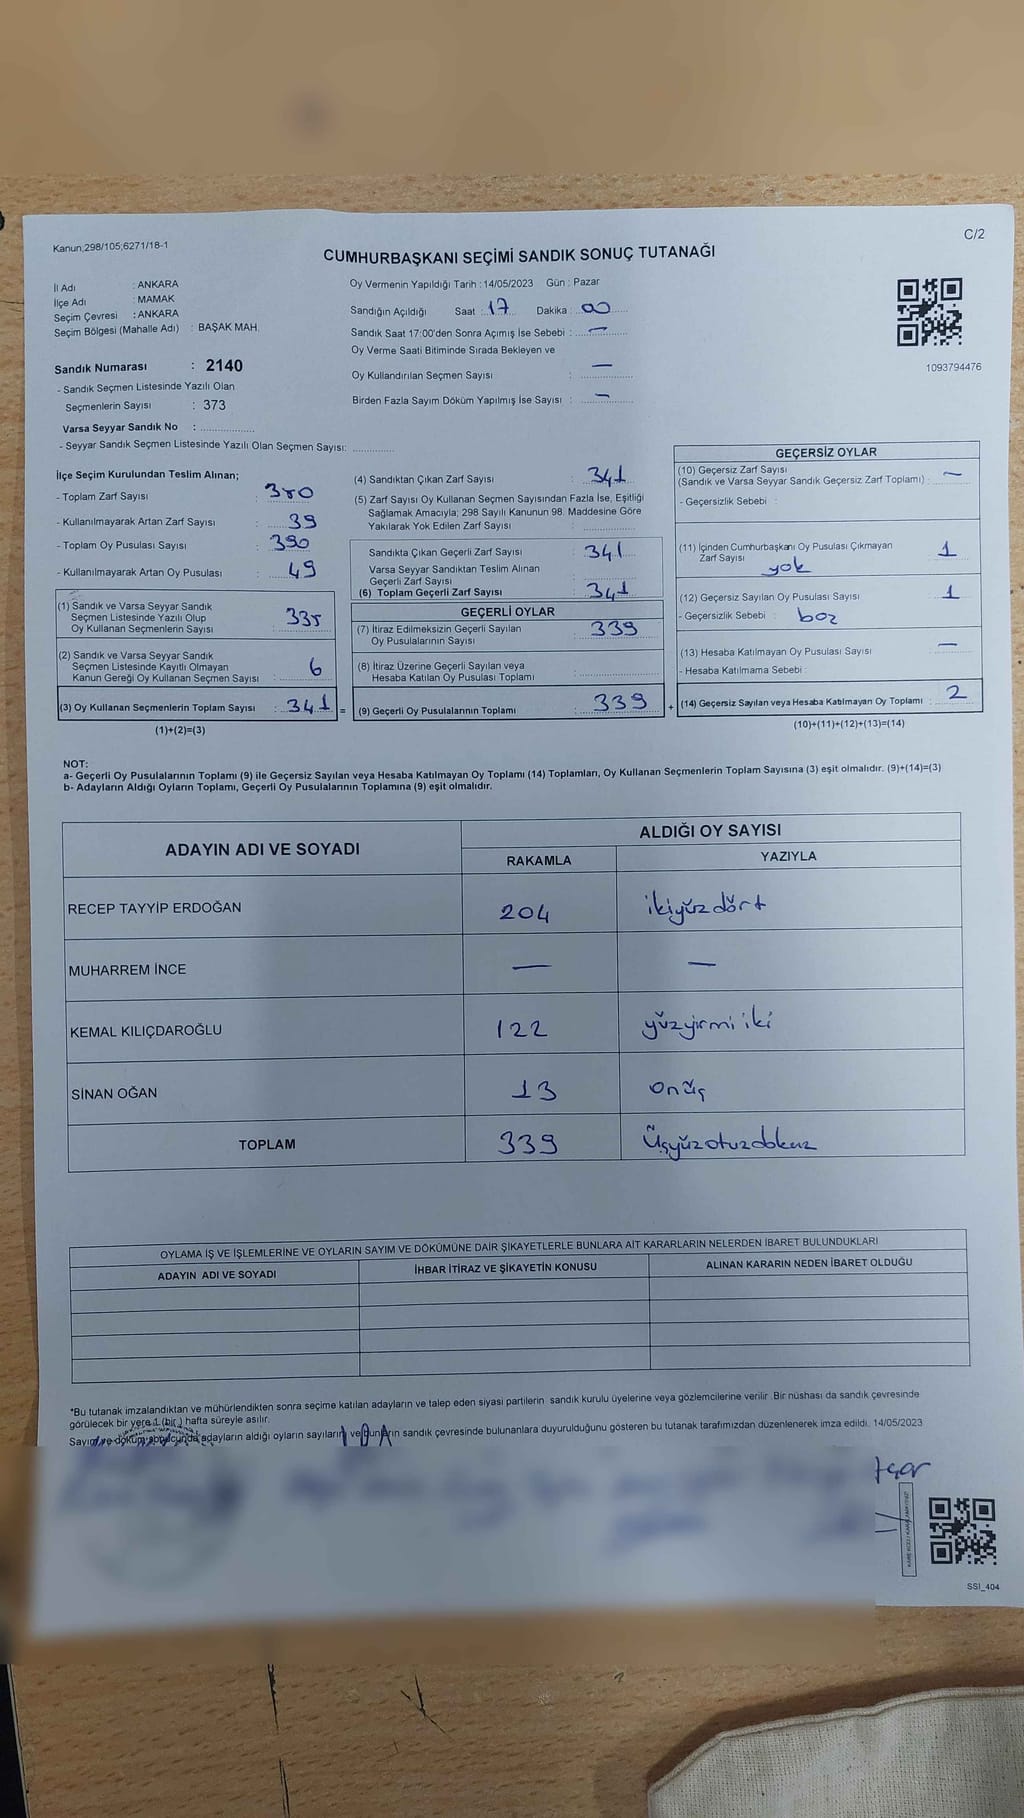 Kanun;298/105;6271/18-1
C/2
CUMHURBAŞKANI SEÇİMİ SANDIK SONUÇ TUTANAĞI
İl Adı : ANKARA
İlçe Adı : MAMAK
Seçim Çevresi : ANKARA
Seçim Bölgesi (Mahalle Adı) : BAŞAK MAH.
Sandık Numarası : 2140
- Sandık Seçmen Listesinde Yazılı Olan
Seçmenlerin Sayısı : 373
Varsa Seyyar Sandık No :
- Seyyar Sandık Seçmen Listesinde Yazılı Olan Seçmen Sayısı:
Oy Vermenin Yapıldığı Tarih : 14/05/2023 Gün : Pazar
Sandığın Açıldığı Saat : 17 Dakika : 00
Sandık Saat 17:00'den Sonra Açımış İse Sebebi : —
Oy Verme Saati Bitiminde Sırada Bekleyen ve
Oy Kullandırılan Seçmen Sayısı : —
Birden Fazla Sayım Döküm Yapılmış İse Sayısı : —
1093794476
İlçe Seçim Kurulundan Teslim Alınan;
- Toplam Zarf Sayısı : 380
- Kullanılmayarak Artan Zarf Sayısı : 39
- Toplam Oy Pusulası Sayısı : 390
- Kullanılmayarak Artan Oy Pusulası : 49
(1) Sandık ve Varsa Seyyar Sandık
Seçmen Listesinde Yazılı Olup
Oy Kullanan Seçmenlerin Sayısı : 335
(2) Sandık ve Varsa Seyyar Sandık
Seçmen Listesinde Kayıtlı Olmayan
Kanun Gereği Oy Kullanan Seçmen Sayısı : 6
(3) Oy Kullanan Seçmenlerin Toplam Sayısı : 341 =
(1)+(2)=(3)
(4) Sandıktan Çıkan Zarf Sayısı : 341
(5) Zarf Sayısı Oy Kullanan Seçmen Sayısından Fazla İse, Eşitliği
Sağlamak Amacıyla; 298 Sayılı Kanunun 98. Maddesine Göre
Yakılarak Yok Edilen Zarf Sayısı :
Sandıkta Çıkan Geçerli Zarf Sayısı : 341
Varsa Seyyar Sandıktan Teslim Alınan
Geçerli Zarf Sayısı :
(6) Toplam Geçerli Zarf Sayısı : 341
GEÇERLİ OYLAR
(7) İtiraz Edilmeksizin Geçerli Sayılan
Oy Pusulalarının Sayısı : 339
(8) İtiraz Üzerine Geçerli Sayılan veya
Hesaba Katılan Oy Pusulası Toplamı :
(9) Geçerli Oy Pusulalarının Toplamı : 339 +
GEÇERSİZ OYLAR
(10) Geçersiz Zarf Sayısı
(Sandık ve Varsa Seyyar Sandık Geçersiz Zarf Toplamı) : —
- Geçersizlik Sebebi :
(11) İçinden Cumhurbaşkanı Oy Pusulası Çıkmayan
Zarf Sayısı : 1
yok
(12) Geçersiz Sayılan Oy Pusulası Sayısı : 1
- Geçersizlik Sebebi : boz
(13) Hesaba Katılmayan Oy Pusulası Sayısı : —
- Hesaba Katılmama Sebebi :
(14) Geçersiz Sayılan veya Hesaba Katılmayan Oy Toplamı : 2
(10)+(11)+(12)+(13)=(14)
NOT:
a- Geçerli Oy Pusulalarının Toplamı (9) ile Geçersiz Sayılan veya Hesaba Katılmayan Oy Toplamı (14) Toplamları, Oy Kullanan Seçmenlerin Toplam Sayısına (3) eşit olmalıdır. (9)+(14)=(3)
b- Adayların Aldığı Oyların Toplamı, Geçerli Oy Pusulalarının Toplamına (9) eşit olmalıdır.
ADAYIN ADI VE SOYADI
ALDIĞI OY SAYISI
RAKAMLA YAZIYLA
RECEP TAYYİP ERDOĞAN 204 ikiyüzdört
MUHARREM İNCE — —
KEMAL KILIÇDAROĞLU 122 yüzyirmi iki
SİNAN OĞAN 13 onüç
TOPLAM 339 Üçyüzotuzdokuz
OYLAMA İŞ VE İŞLEMLERİNE VE OYLARIN SAYIM VE DÖKÜMÜNE DAİR ŞİKAYETLERLE BUNLARA AİT KARARLARIN NELERDEN İBARET BULUNDUKLARI
ADAYIN ADI VE SOYADI İHBAR İTİRAZ VE ŞİKAYETİN KONUSU ALINAN KARARIN NEDEN İBARET OLDUĞU
*Bu tutanak imzalandıktan ve mühürlendikten sonra seçime katılan adayların ve talep eden siyasi partilerin sandık kurulu üyelerine veya gözlemcilerine verilir. Bir nüshası da sandık çevresinde
görülecek bir yere 1 (bir) hafta süreyle asılır.
Sayım ve döküm sonucunda adayların aldığı oyların sayıların ve bunların sandık çevresinde bulunanlara duyurulduğunu gösteren bu tutanak tarafımızdan düzenlenerek imza edildi. 14/05/2023
SSI_404